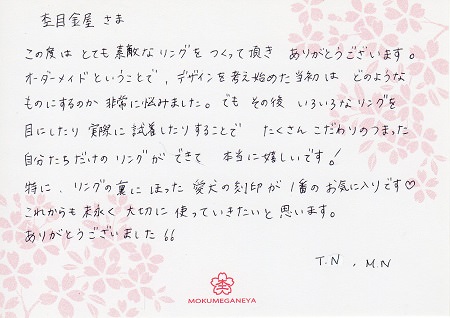 杢目金屋 さま
この度は とても 素敵な リングを つくって頂き ありがとうございます。
オーダーメイド ということで、デザインを 考え始めた 当初は どのような
ものにするのか 非常に悩みました。でも その後 いろいろな リングを
目にしたり 実際に 試着したり することで たくさん こだわりの つまった
自分たちだけの リングが できて 本当に 嬉しいです!
特に、リングの裏に ほった 愛犬の 刻印が 1番の お気に入りです♡
これからも 末永く 大切に 使っていきたいと 思います。
ありがとうございました
T.N , M.N
MOKUMEGANEYA